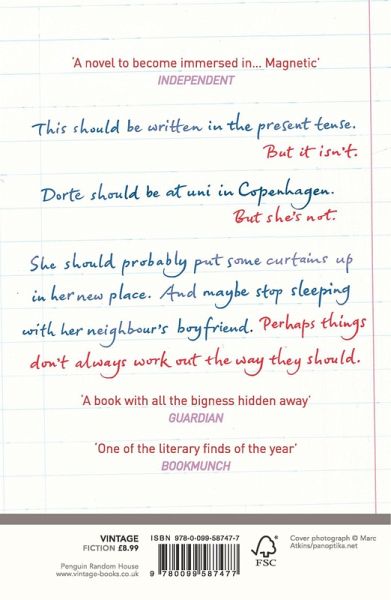 ‘A novel to become immersed in... Magnetic‘
INDEPENDENT
This should be written in the present tense.
But it isn't.
Dorte should be at uni in Copenhagen.
But she's not.
She should probably put some curtains up
in her new place. And maybe stop sleeping
with her neighbour's boyfriend. Perhaps things
don't always work out the way they should.
‘A book with all the bigness hidden away’
GUARDIAN
‘One of the literary finds of the year’
BOOKMUNCH
VINTAGE
FICTION £8.99
Penguin Random House
www.vintage-books.co.uk
ISBN 978-0-099-58747-7
9 780099 587477
FSC
Cover photograph © Marc
Atkins/panoptika.net